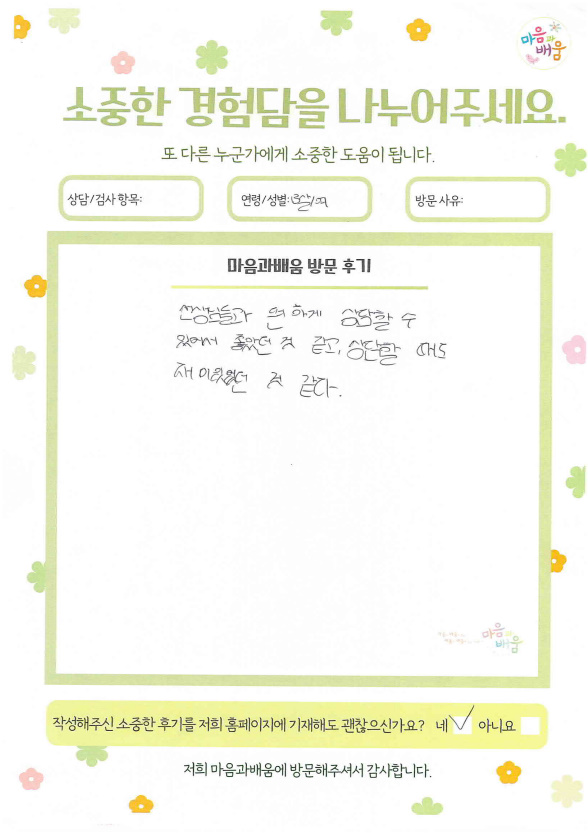 마음과
배움
소중한 경험담을 나누어주세요.
또 다른 누군가에게 소중한 도움이 됩니다.
상담/검사 항목:
연령/성별:
방문 사유:
마음과배움 방문 후기
선생님들과 편하게 상담할 수
있어서 좋았던 것 같고, 상담할 때도
재미있었던 것 같다.
마음과
배움
작성해주신 소중한 후기를 저희 홈페이지에 기재해도 괜찮으신가요? 네 아니요
저희 마음과배움에 방문해주셔서 감사합니다.